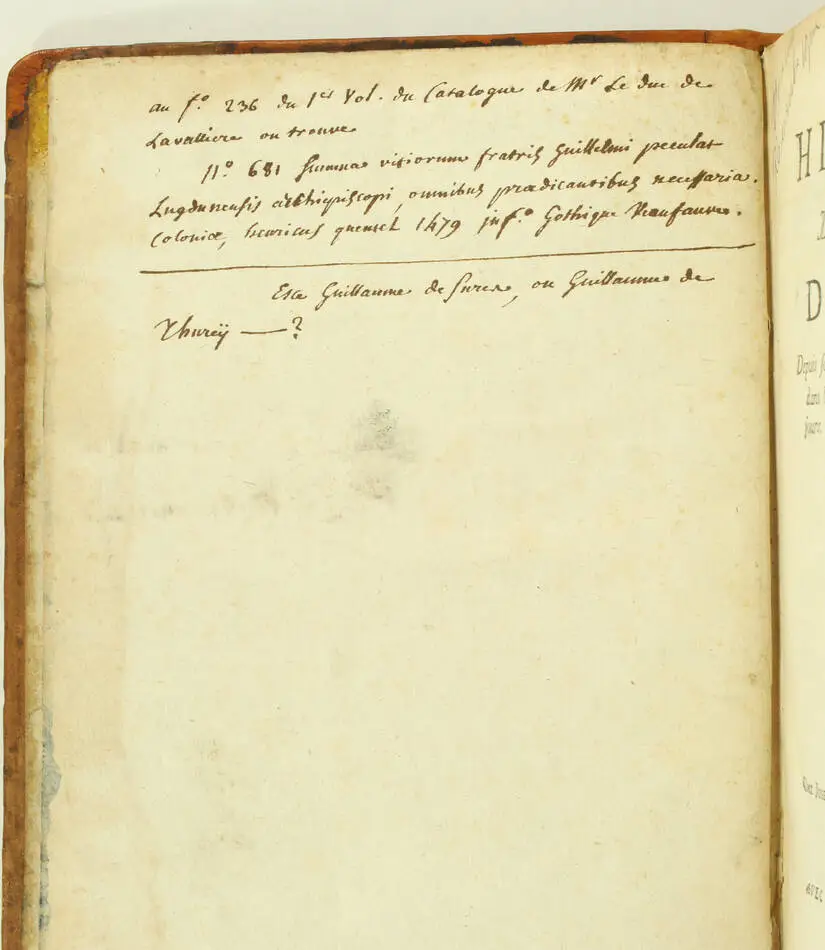 au f.° 236 du 1er Vol. du Catalogue de Mr Le duc de
Lavalliere on trouve
N.° 681 Summa vitiorum fratris Guillelmi
Lugdunensis archiepiscopi, omnibus praedicantibus necessaria.
Coloniæ, henricus quentel 1479 in f.° Gothique Veau fauve.
Est ce Guillaume de Sure, ou Guillaume de
Thureÿ — ?
HI
D
Depuis
dans